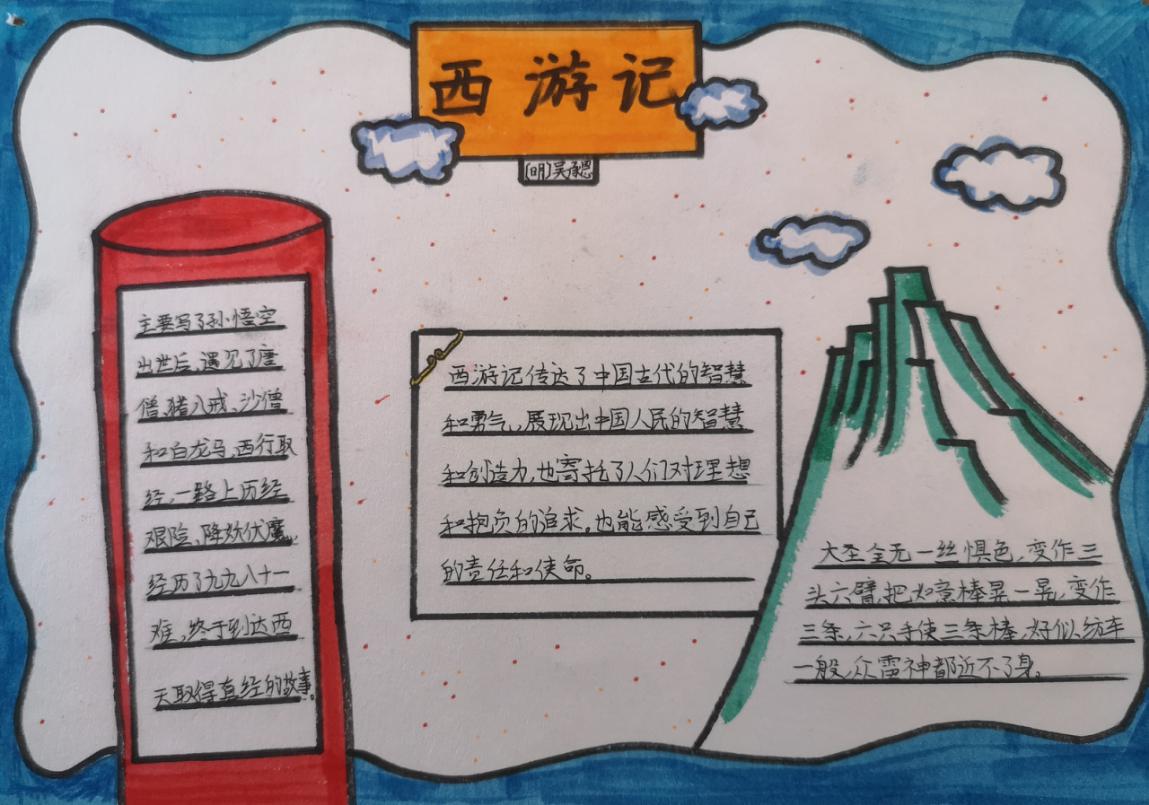 西游记
(明)吴承恩
主要写了孙悟空
出世后,遇见了唐
僧、猪八戒、沙僧
和白龙马,西行取
经,一路上历经
艰险,降妖伏魔,
经历了九九八十一
难,终于到达西
天取得真经的故事。
西游记传达了中国古代的智慧
和勇气,展现出中国人民的智慧
和创造力,也寄托了人们对理想
和抱负的追求,也能感受到自己
的责任和使命。
大圣全无一丝惧色,变作三
头六臂,把如意棒晃一晃,变作
三条,六只手使三条棒,好似纺车
一般,众雷神都近不了身。